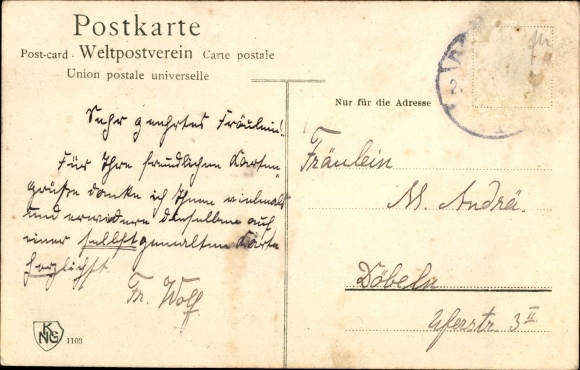 Postkarte
Post-card - Weltpostverein Carte postale
Union postale universelle
Nur für die Adresse
Sehr geehrtes Fräulein!
Für Ihre freundlichen Karten-
grüße danke ich Ihnen vielmals
und erwidere dieselben auf
einer selbstgemalten Karte
herzlichst
Fr. Wolf
Fräulein
M. Andrä.
Döbeln
Uferstr. 3 II
KNG 1103